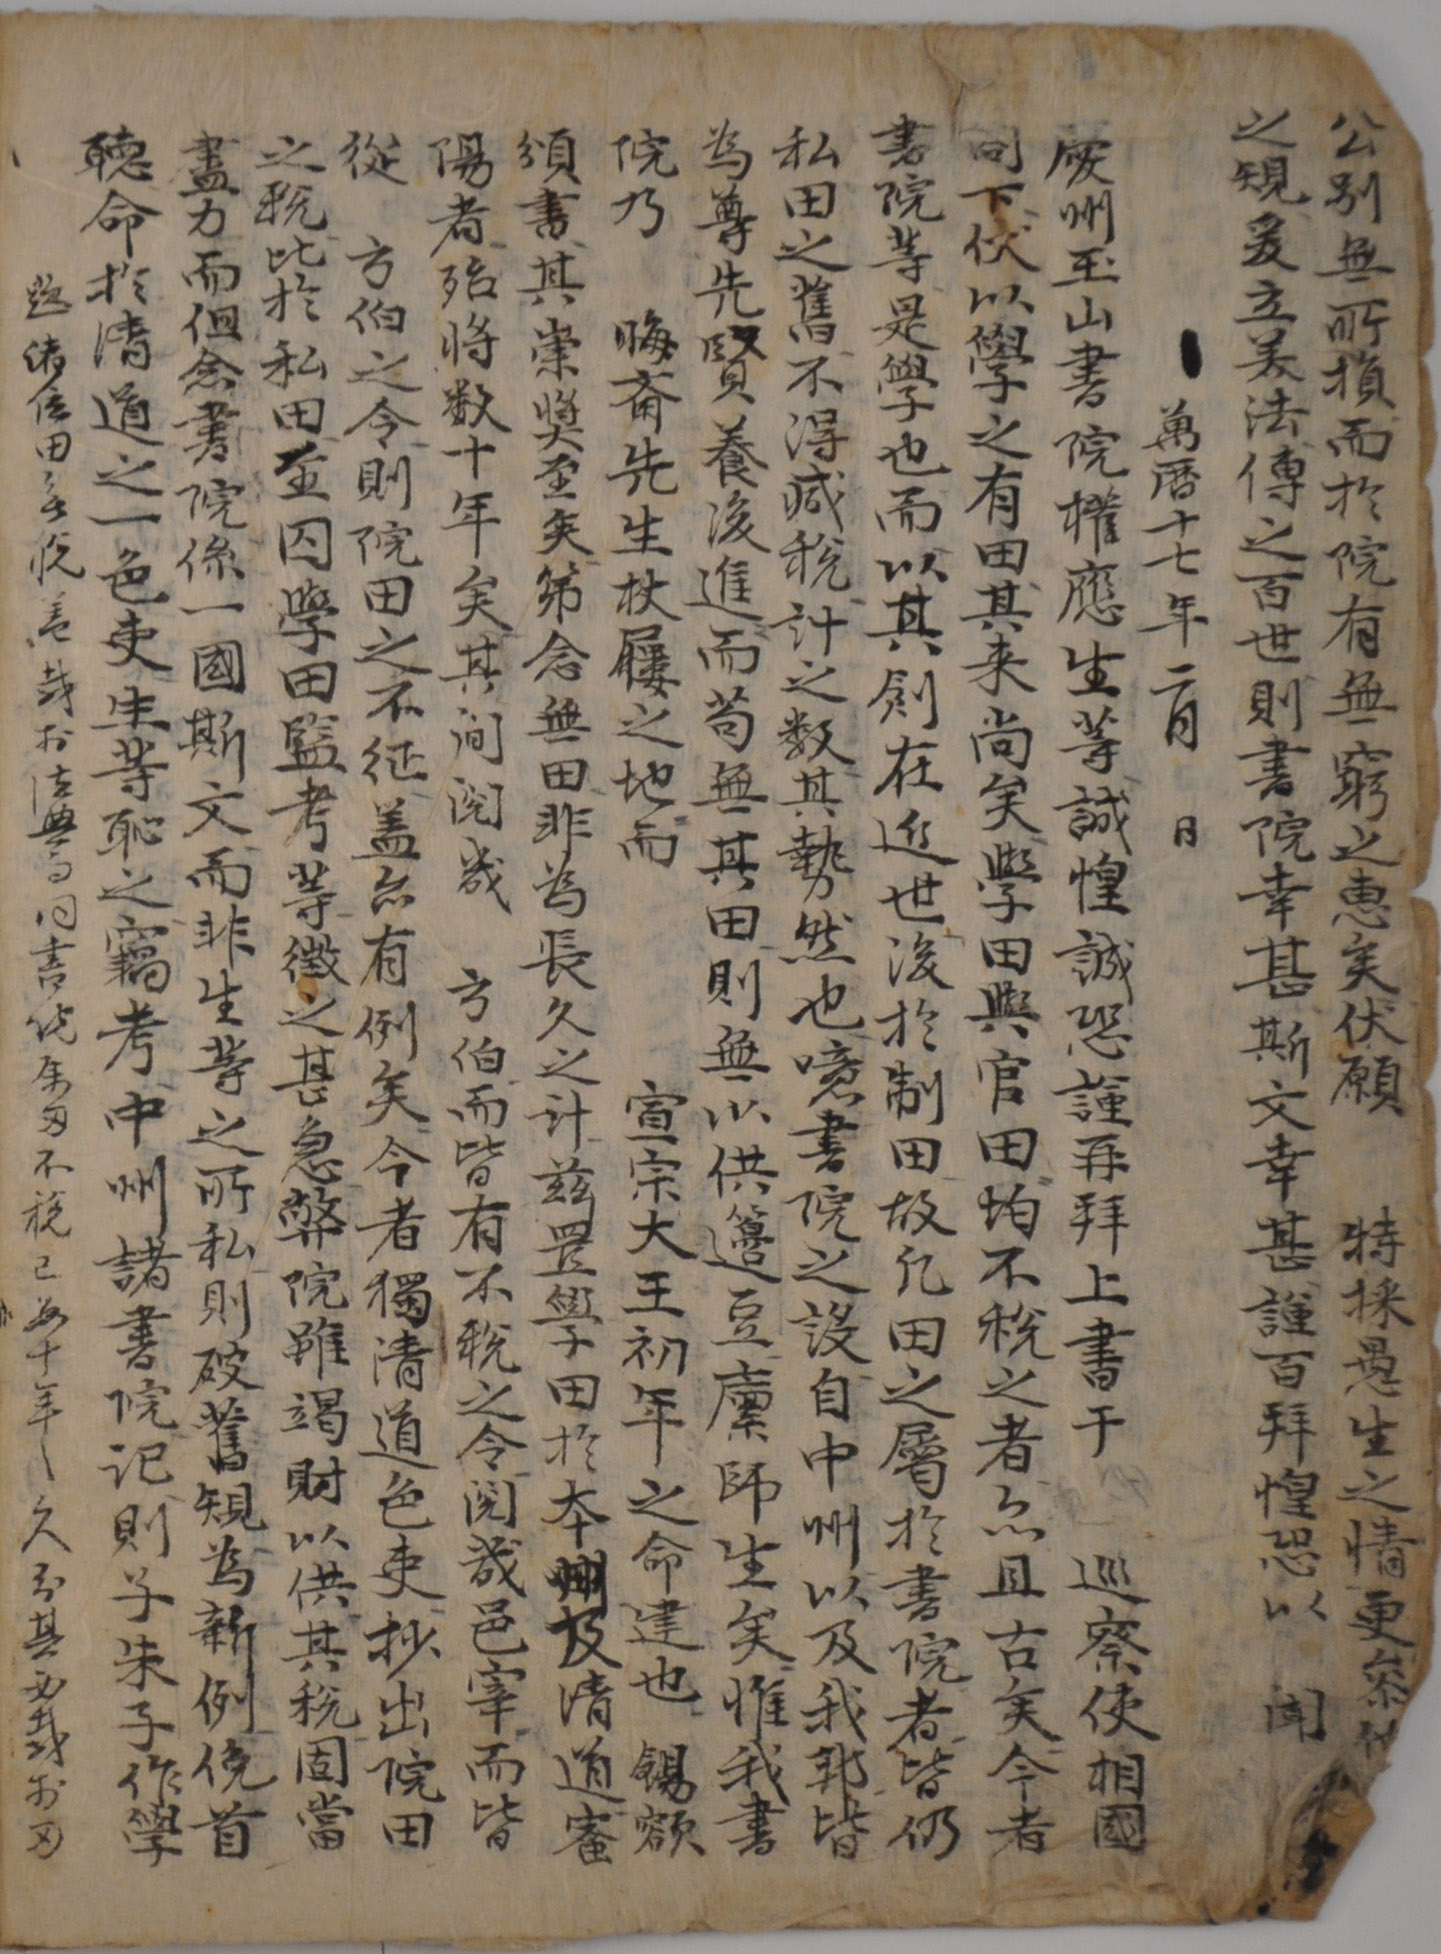 公別無所損而於院有無窮之惠矣伏願 特採愚生之情更參
之規爰立美法傳之百世則書院幸甚斯文幸甚謹百拜惶恐以 聞
萬曆十七年二月 日
慶州玉山書院權應生等誠惶誠恐謹再拜上書于 巡察使相國
閤下伏以學之有田其来尚矣學田與官田均不稅之者亦且古矣今者
書院等是學也而以其創在近世後於制田故凡田之屬於書院者皆仍
私田之舊不得减稅計之数其勢然也噫書院之設自中州以及我邦皆
為尊先賢養後進而苟無其田則無以供簋籩豆廩師生矣惟我書
院乃 晦齋先生杖屨之地而 宣宗大王初年之命建也 錫額
頒書其崇奬至矣第念無田非為長久之計玆置學田於本州及清道密
陽者殆將数十年矣其間閱幾 方伯而皆有不稅之令閱幾邑宰而皆
從 方伯之令則院田之不征盖亦有例矣今者獨清道色吏抄出院田
之稅比於私田至囚學田監考等徵之甚急弊院雖竭財以供其稅固當
盡力而但念書院係一國斯文而非生等之所私則破舊規為新例俛首
聽命於清道之一色吏生等恥之竊考中州諸書院記則子朱子作學
題 位田 稅盖載於法典 書院 不稅已 十年 久